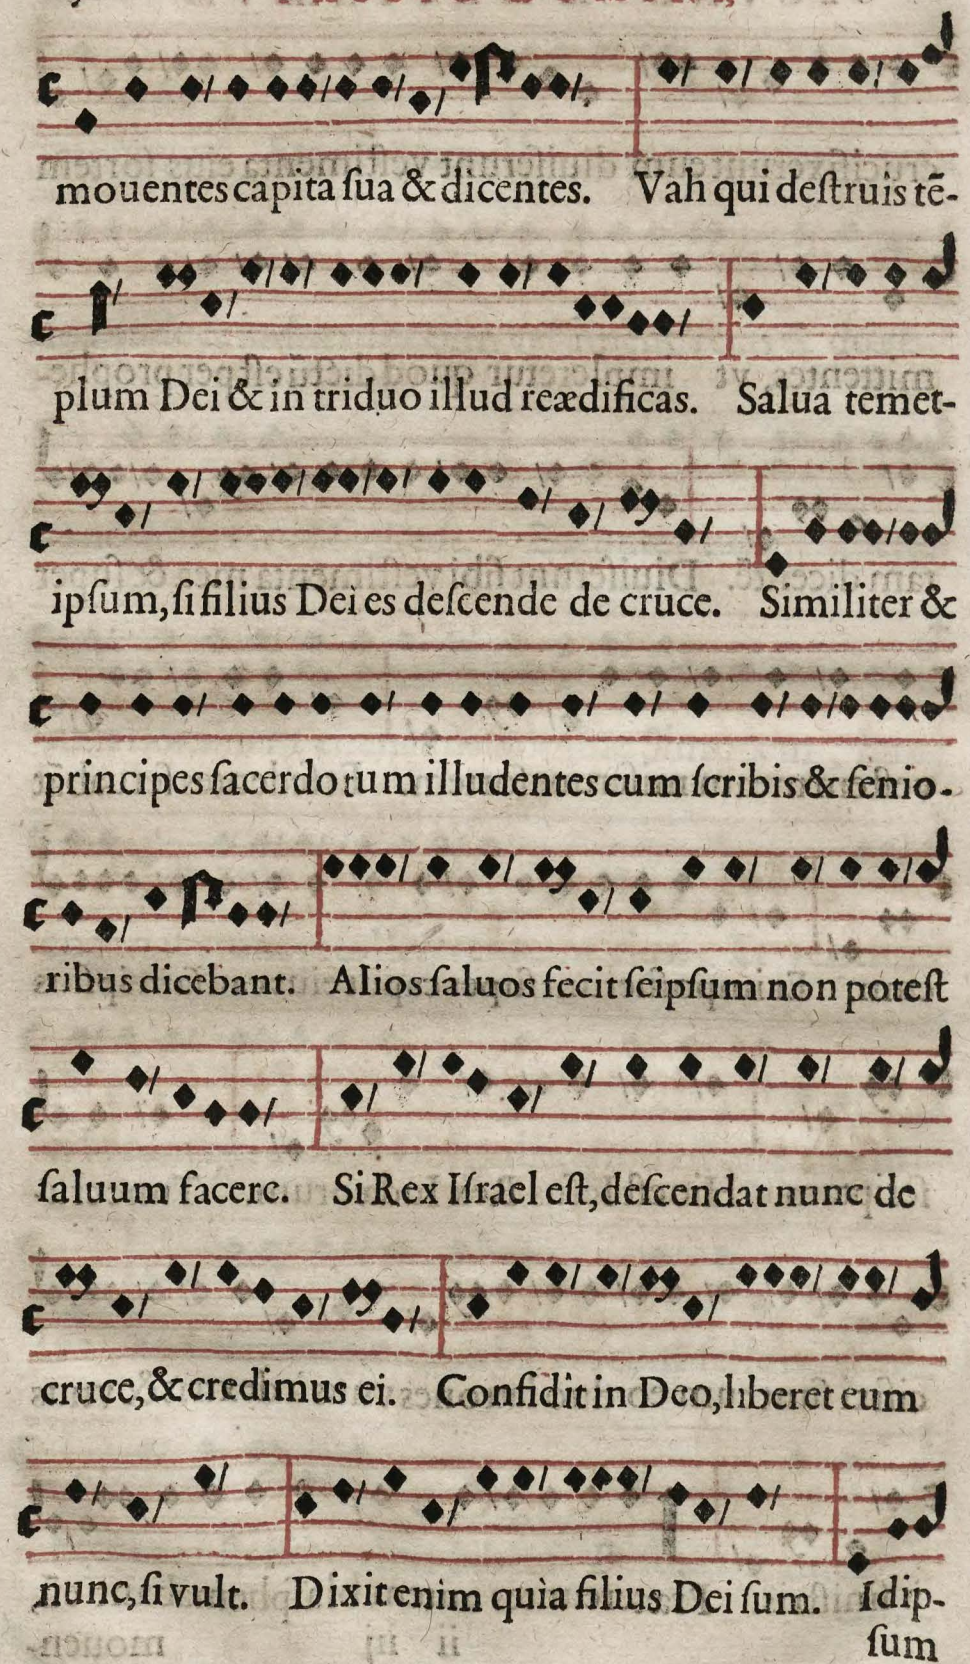 mouentes capita ſua & dicentes. Vah qui deſtruis tē-
plum Dei & in triduo illud reædificas. Salua temet-
ipſum, ſi filius Dei es deſcende de cruce. Similiter &
principes ſacerdotum illudentes cum ſcribis & ſenio-
ribus dicebant. Alios ſaluos fecit ſeipſum non poteſt
ſaluum facere. Si Rex Iſrael eſt, deſcendat nunc de
cruce, & credimus ei. Confidit in Deo, liberet eum
nunc, ſi vult. Dixit enim quia filius Dei ſum. Idip-
ſum